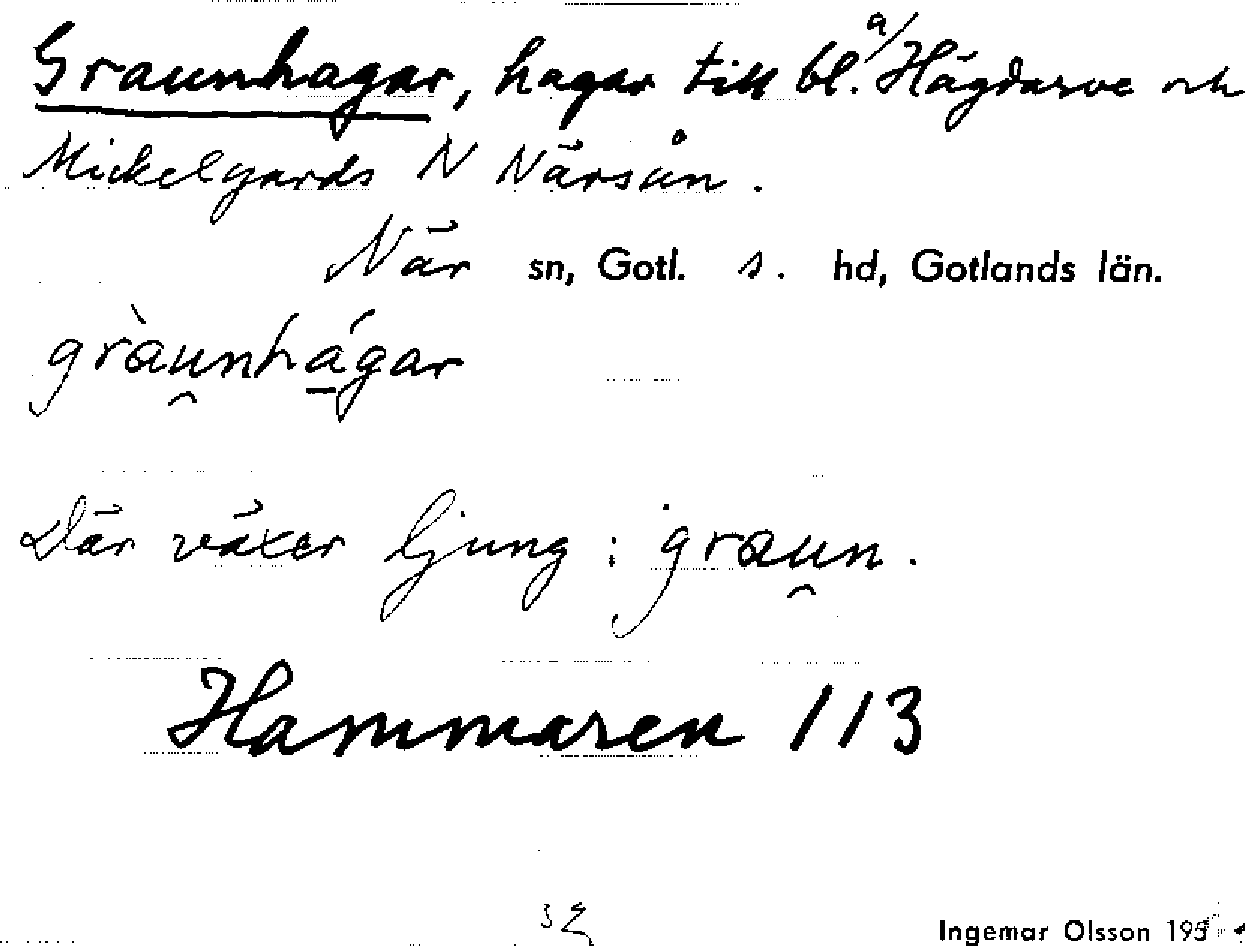 Graunhagar, hagar till bl. a/ Hägdarve och
Mickelgards N Närsån.
När sn, Gotl. s. hd, Gotlands län.
gràu̯nhá̲gar
Där växer ljung: grau̯n.
Hammaren 113
Ingemar Olsson